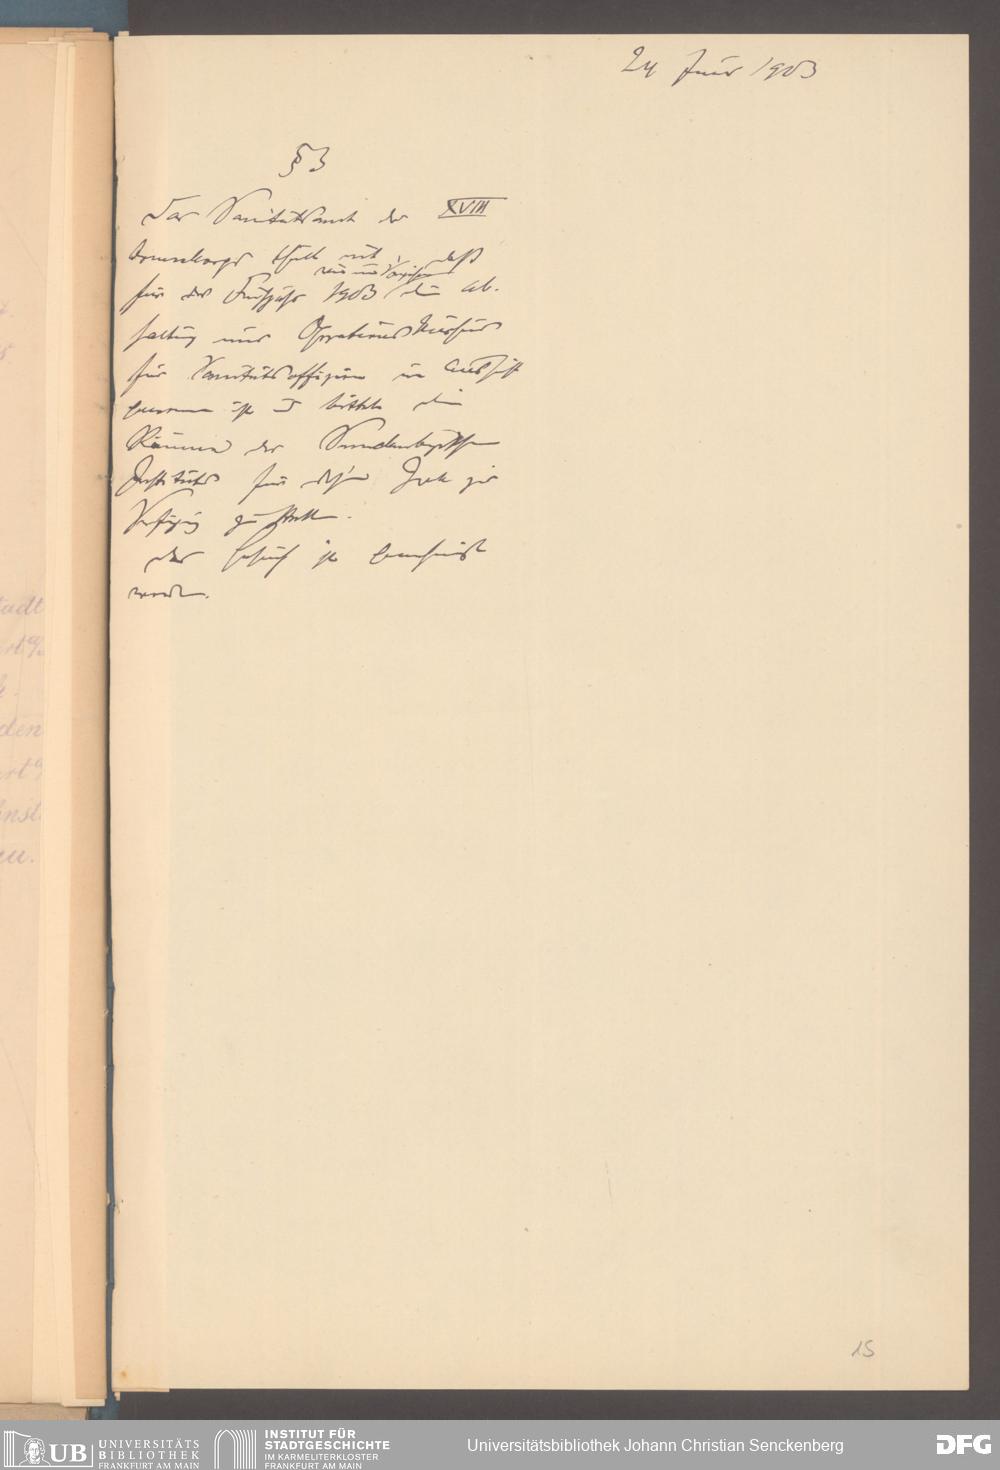 24 Juni 1903
§ 3
Das Sanitätsamt des XVIII
Armeekorps theilt mit, daß
wie im Vorjahre
für das Frühjahr 1903 die Ab-
haltung eines Operationskursus
für Sanitätsoffiziere in Aussicht
genommen ist u bittet die
Räume des Senckenbergischen
Instituts für diesen Zweck zur
Verfügung zu stellen.
Das Gesuch ist genehmigt
worden.
15
tadt
den
UB UNIVERSITÄTS
BIBLIOTHEK
FRANKFURT AM MAIN
INSTITUT FÜR
STADTGESCHICHTE
IM KARMELITERKLOSTER
FRANKFURT AM MAIN
Universitätsbibliothek Johann Christian Senckenberg
DFG